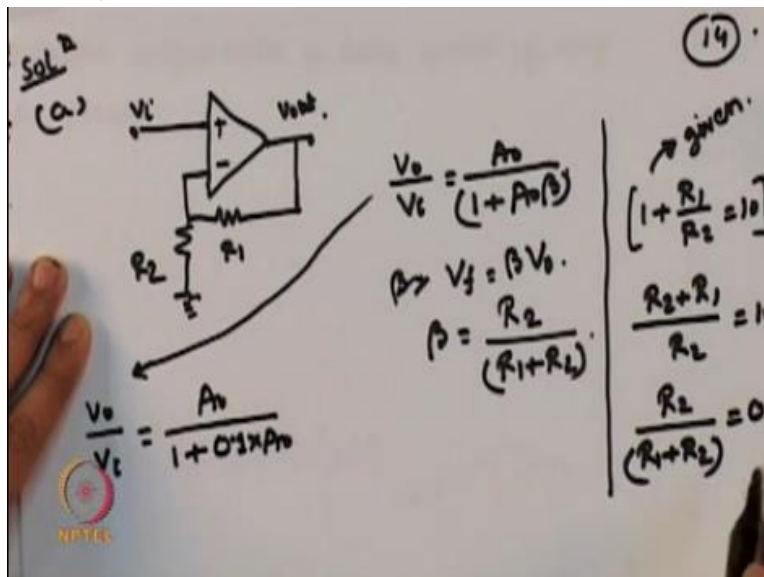 14
Sol^n
(a)
Vi
Vout.
+
-
R1
R2
V0/Vi = A0/(1 + A0β)
β→ Vf = βV0.
β = R2/(R1+R2).
V0/Vi = A0/(1 + 0.1×A0)
given.
[1 + R1/R2 = 10]
(R2+R1)/R2 = 1
R2/(R1+R2) = 0
NPTEL